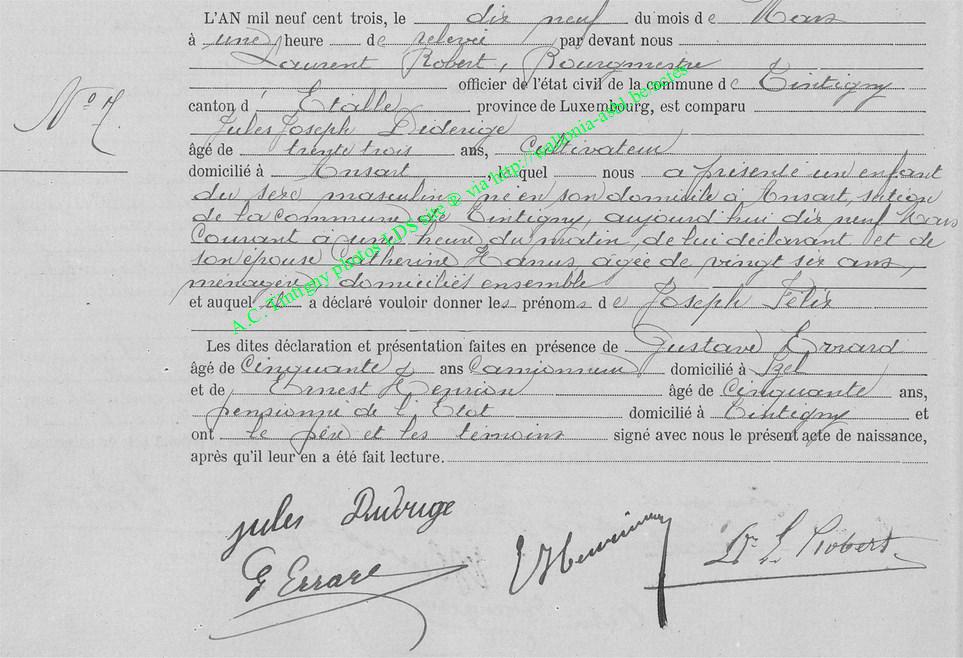 L'AN mil neuf cent trois, le dix neuf du mois de Mars
à une heure de relevée par devant nous
Laurent Robert, Bourgmestre
officier de l'état civil de la commune de Tintigny
canton d' Etalle province de Luxembourg, est comparu
N° 7
Jules Joseph Dideruge
âgé de trente trois ans, Cultivateur
domicilié à Ansart, lequel nous a présenté un enfant
du sexe masculin, né en son domicile à Ansart, section
de la commune de Tintigny, aujourd'hui dix neuf Mars
Courant à une heure du matin, de lui déclarant et de
son épouse Catherine Hanus, agée de vingt six ans,
ménagère, domiciliés ensemble
et auquel il a déclaré vouloir donner les prénoms de Joseph Félix
Les dites déclaration et présentation faites en présence de Gustave Errard
âgé de Cinquante ans Camionneur domicilié à Izel
et de Ernest Henrion âgé de Cinquante ans,
pensionné de l'Etat domicilié à Tintigny et
ont le père et les témoins signé avec nous le présent acte de naissance,
après qu'il leur en a été fait lecture.
Jules Dideruge
G Errard
E Henrion
Dr L. Robert
A.C. Tintigny photos LDS site ® via http://wallonia-asbl.be/actes